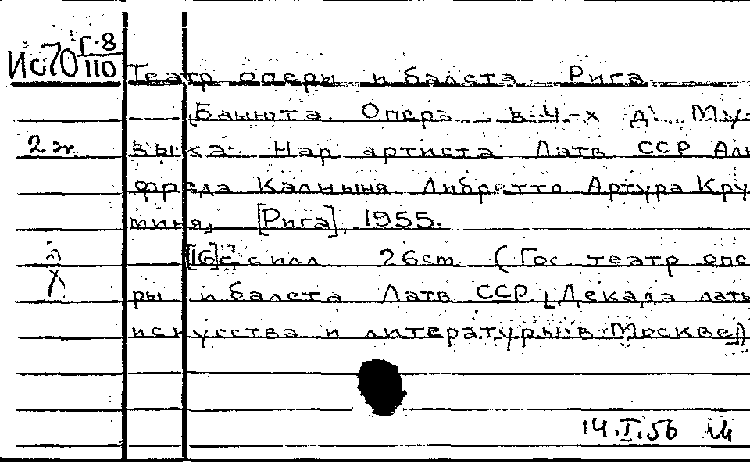 Ис70 Г-8/110
Театр оперы и балета. Рига
Банюта. Опера в 4-х д. Му-
2 эк. зыка Нар артиста Латв ССР Аль
фреда Калныня Либретто Артура Кру
миня, [Рига], 1955.
[16] с с илл. 26 cm (Гос театр опе
ры и балета Латв ССР [Декада латы
искусства и литературы в Москве])
14.I.56